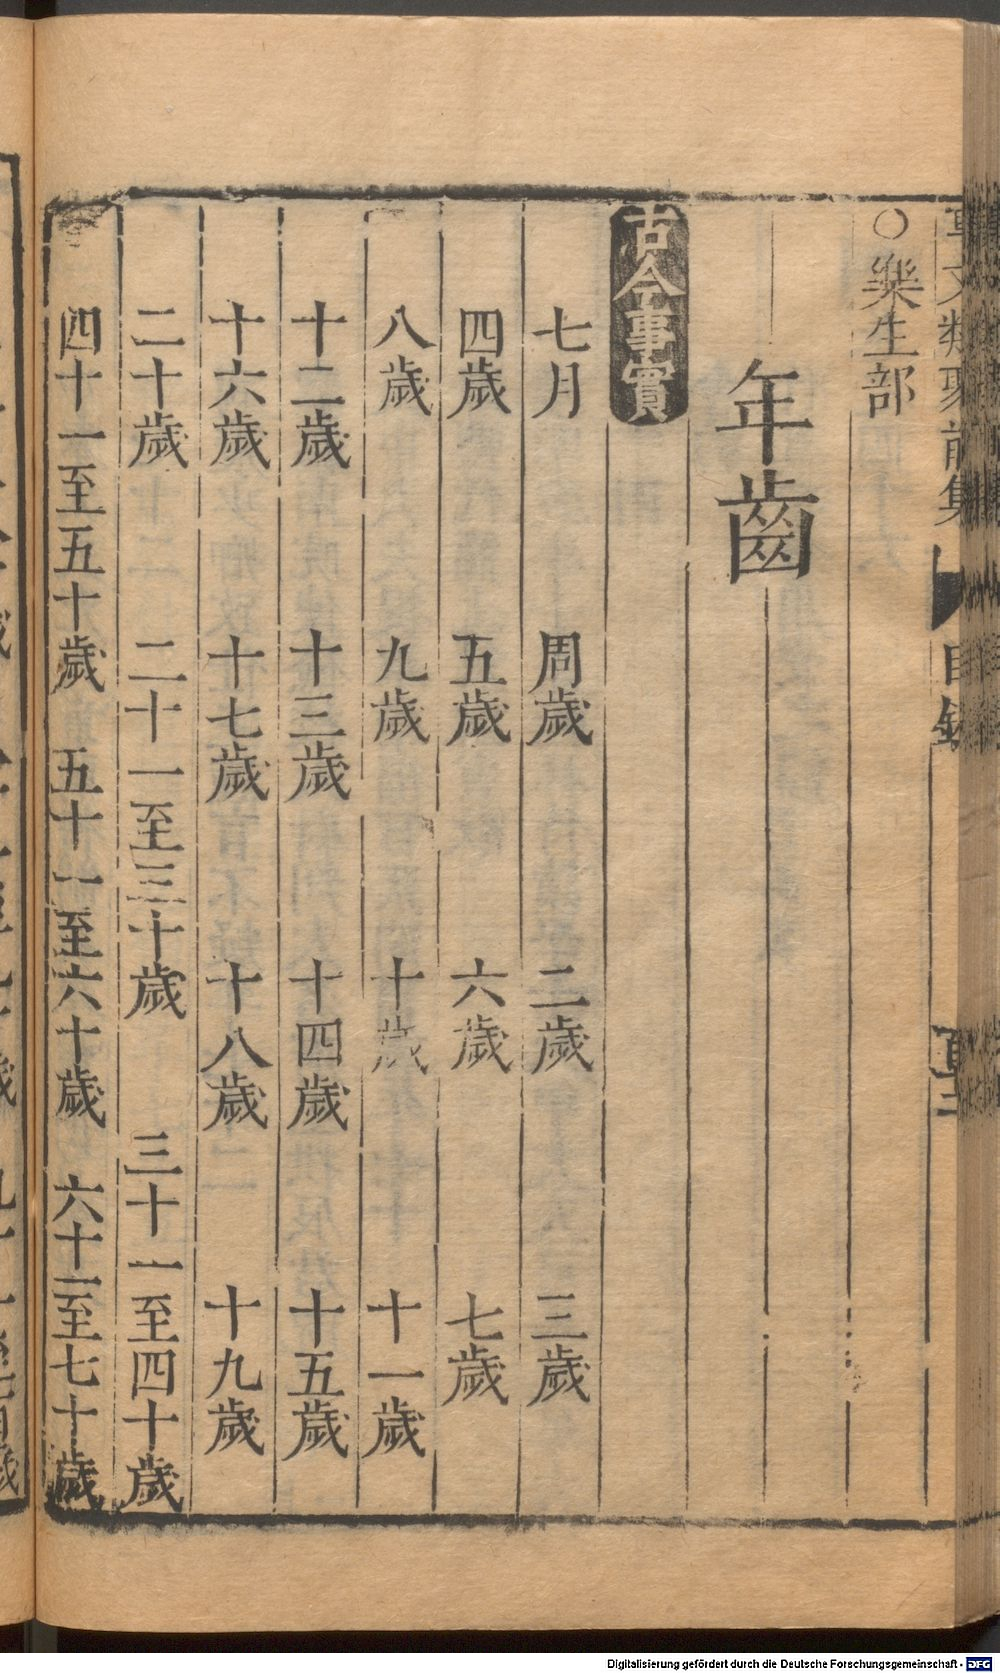 事文類聚前集 目錄
○樂生部
年齒
古今事實
七月 周歲 二歲 三歲
四歲 五歲 六歲 七歲
八歲 九歲 十歲 十一歲
十二歲 十三歲 十四歲 十五歲
十六歲 十七歲 十八歲 十九歲
二十歲 二十一至三十歲 三十一至四十歲
四十一至五十歲 五十一至六十歲 六十一至七十歲
Digitalisierung gefördert durch die Deutsche Forschungsgemeinschaft - DFG